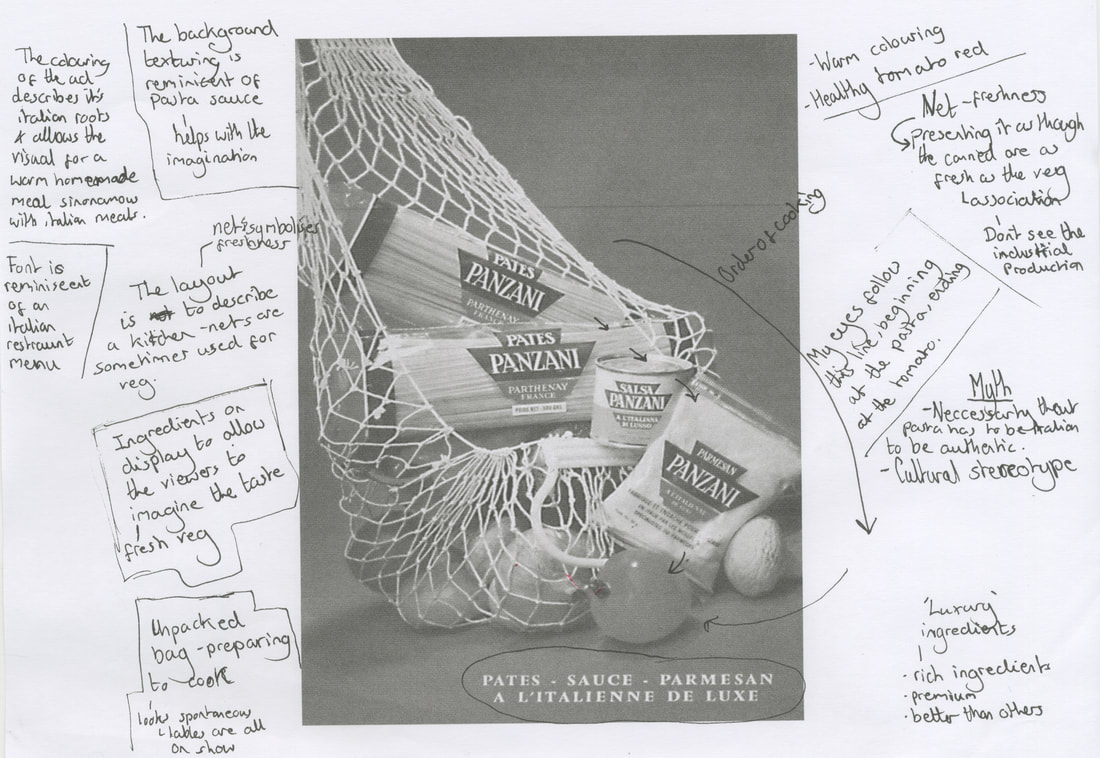 The colouring
of the ad
describes its
italian roots
& allows the
visual for a
warm homemade
meal sinonamow
with italian meals.
The background
texturing is
reminicent of
Pasta sauce
helps with the
imagination
net symbolises
freshness
Font is
reminiscent
of an
italian
restraunt
menu
The layout
is to describe
a kitchen - nets are
sometimes used for
veg.
Ingredients on
display to allow
the viewers to
imagine the taste
fresh veg
Unpacked
bag - preparing
to cook
looks spontaneous
lables are all
on show
PATES
PANZANI
PARTHENAY
FRANCE
PATES
PANZANI
PARTHENAY
FRANCE
POIDS NET : 500 GRS
SALSA
PANZANI
A L'ITALIANA
DI LUSSO
PARMESAN
PANZANI
A L'ITALIENNE
DE LUXE
PATES - SAUCE - PARMESAN
A L'ITALIENNE DE LUXE
Order of cooking
- Warm colouring
- Healthy tomato red
Net - freshness
presenting it as though
the canned are as
fresh as the veg
association
Dont see the
industrial
production
My eyes follow
this line, beginning
at the pasta, ending
at the tomato.
Myth
- Neccessarily that
pasta has to be italian
to be authentic.
- Cultural stereotype
'Luxury'
ingredients
· rich ingredients
· premium
· better than others